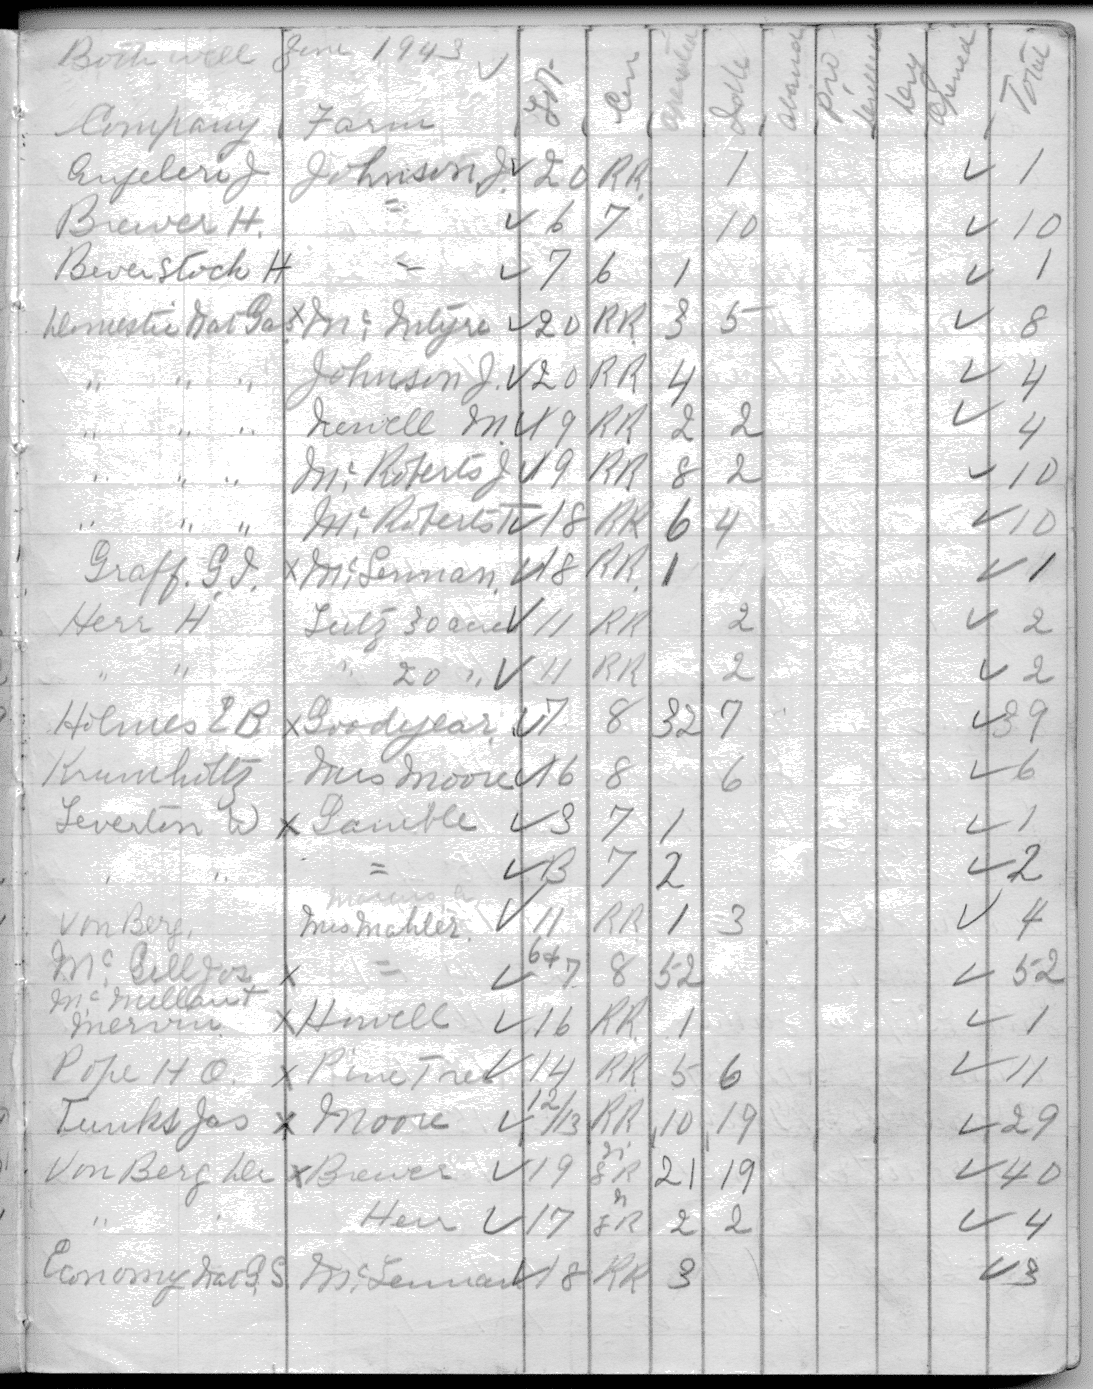 Bothwell June 1943 ✓
Company Farm Lot Con operated Idle aband pro Total
Angeleri J Johnson J. ✓ 20 RR. 1 ✓ 1
Brewer H. " ✓ 6 7 10 ✓ 10
Beverstock H " ✓ 7 6 1 ✓ 1
Domestic Nat Gas x Mc Intyre ✓ 20 RR 3 5 ✓ 8
" " " Johnson J. ✓ 20 RR 4 ✓ 4
" " " Newell M. ✓ 19 RR 2 2 ✓ 4
" " " Mc Roberts J ✓ 19 RR 8 2 ✓ 10
" " " Mc Roberts T ✓ 18 RR 6 4 ✓ 10
Graff. G.I. x Mc Lennan. ✓ 18 RR. 1 ✓ 1
Herr H 30 acre ✓ 11 RR 2 ✓ 2
" " " 20 " ✓ 11 RR 2 ✓ 2
Holmes E B x Goodyear. ✓ 7 8 32 7 ✓ 39
Krumhiltz Mrs Moore ✓ 16 8 6 ✓ 6
Leverton W x Gamble ✓ 3 7 1 ✓ 1
" " " ✓ B 7 2 ✓ 2
Von Berg. Mrs Mahler. ✓ 11 RR 1 3 ✓ 4
Mc Gill Jos x " ✓ 6+7 8 52 ✓ 52
Mc Millan +
Mervin x Howell ✓ 16 RR 1 ✓ 1
Pope H O. x Pine Tree ✓ 14 RR 5 6 ✓ 11
Tunks Jas x Moore ✓ 12/13 RR 10 19 ✓ 29
Von Berg Wm x Brewer ✓ 19 R 21 19 ✓ 40
" " Herr ✓ 17 R 2 2 ✓ 4
Economy Nat G.S. Mc Lennan ✓ 18 RR 3 ✓ 3